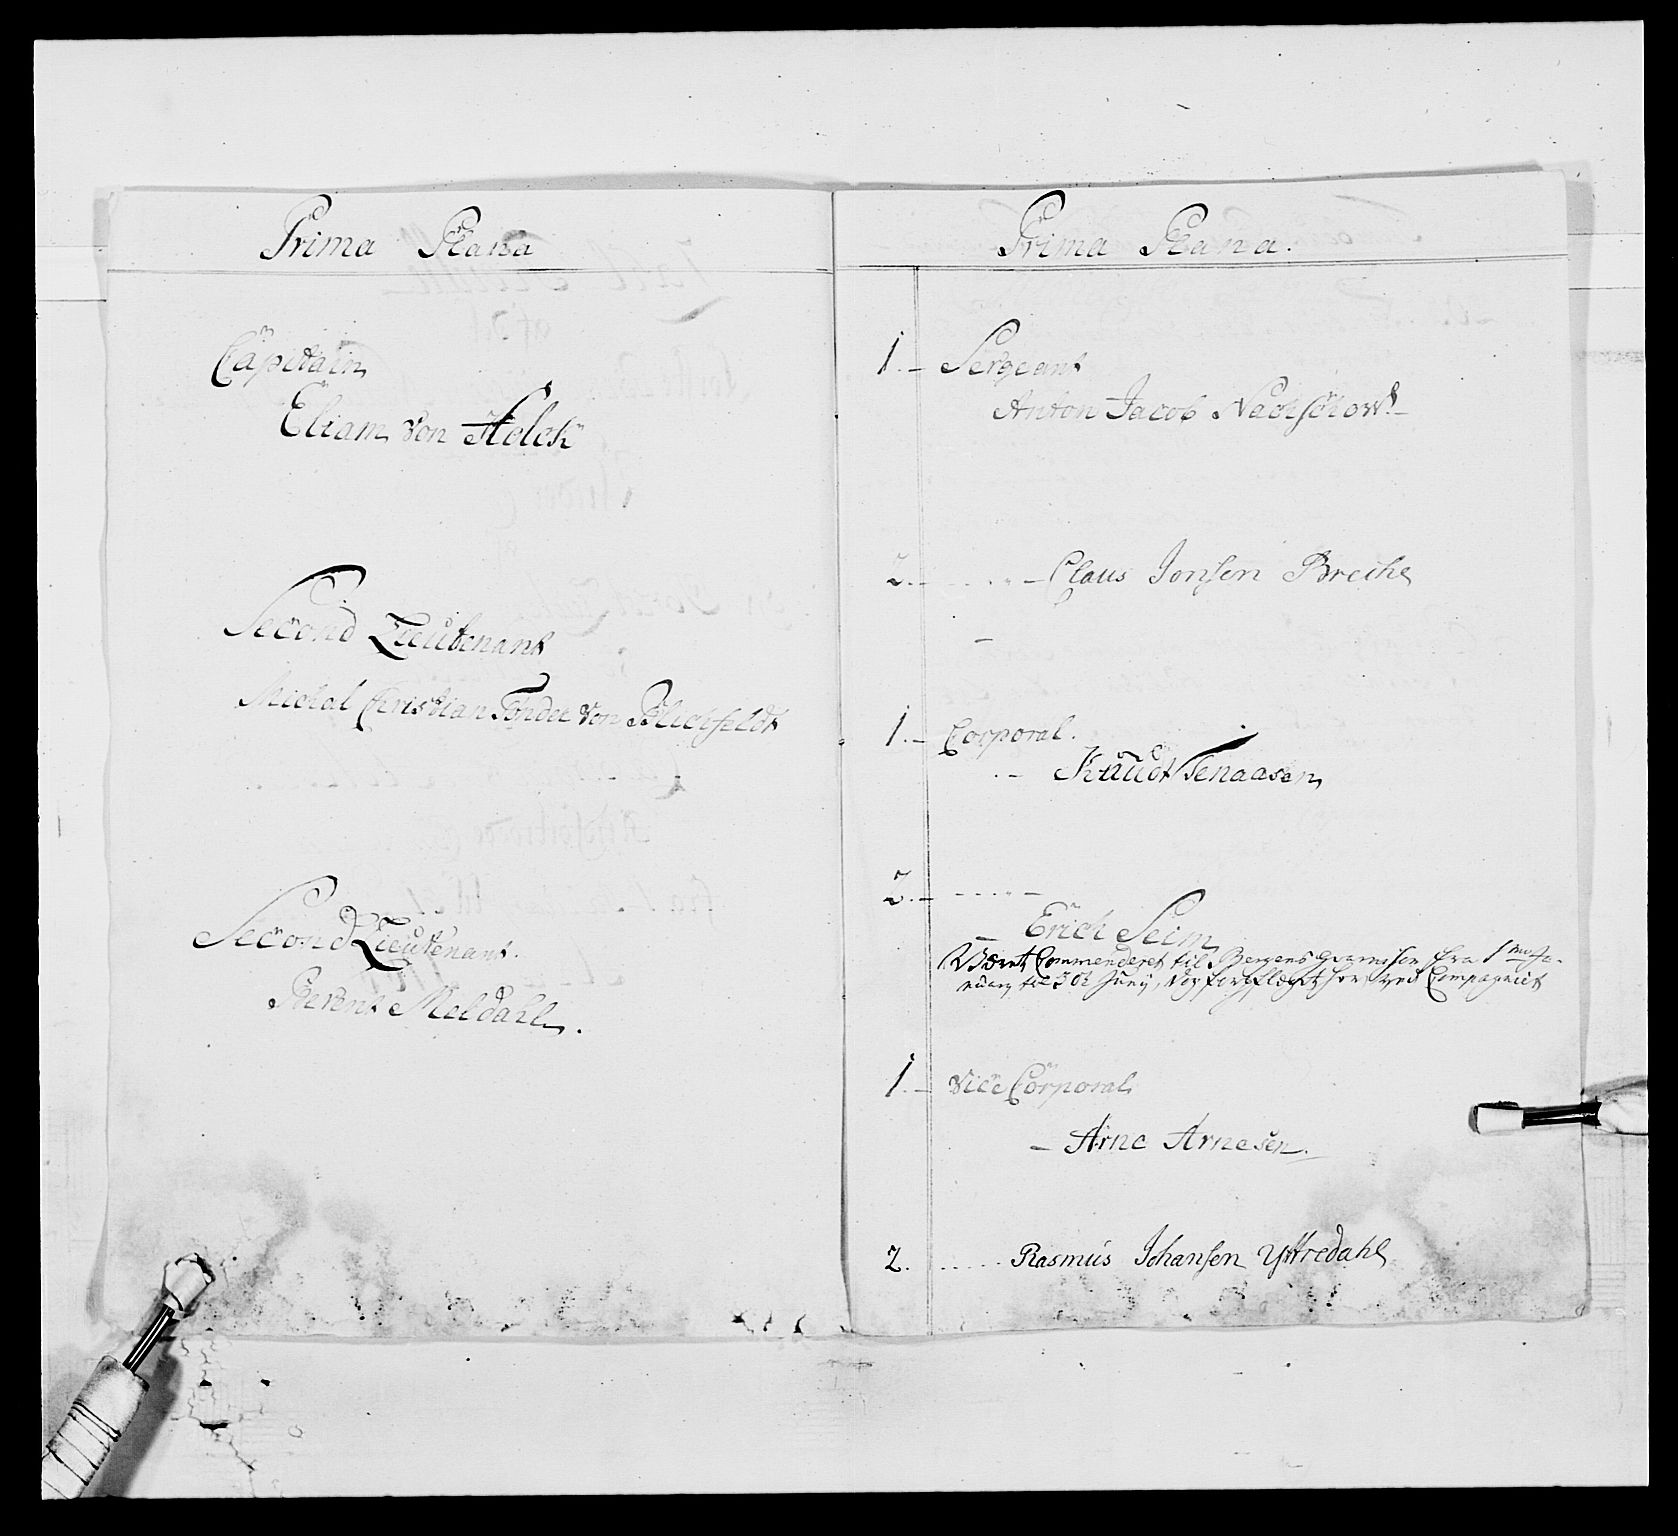 Prima Plana
Capitain
Eliam von Holck
Second Lieutenant
Michal Christian Tønder von Blichfeldt
Second Lieutenant.
Berent Meldahl.
Prima Plana.
1. Sergeant
Anton Jacob
2. Claus Jonsen Breche
1. Corporal.
Knudt Tenaasen
2.
Erich Seim
Været Commenderet til Bergens Guarnison fra 1 Ja-
nuary til 30t Juny, ved Compagniet
1. Vice Corporal
Arne Arnesen.
2. Rasmus Johansen Yttredahl